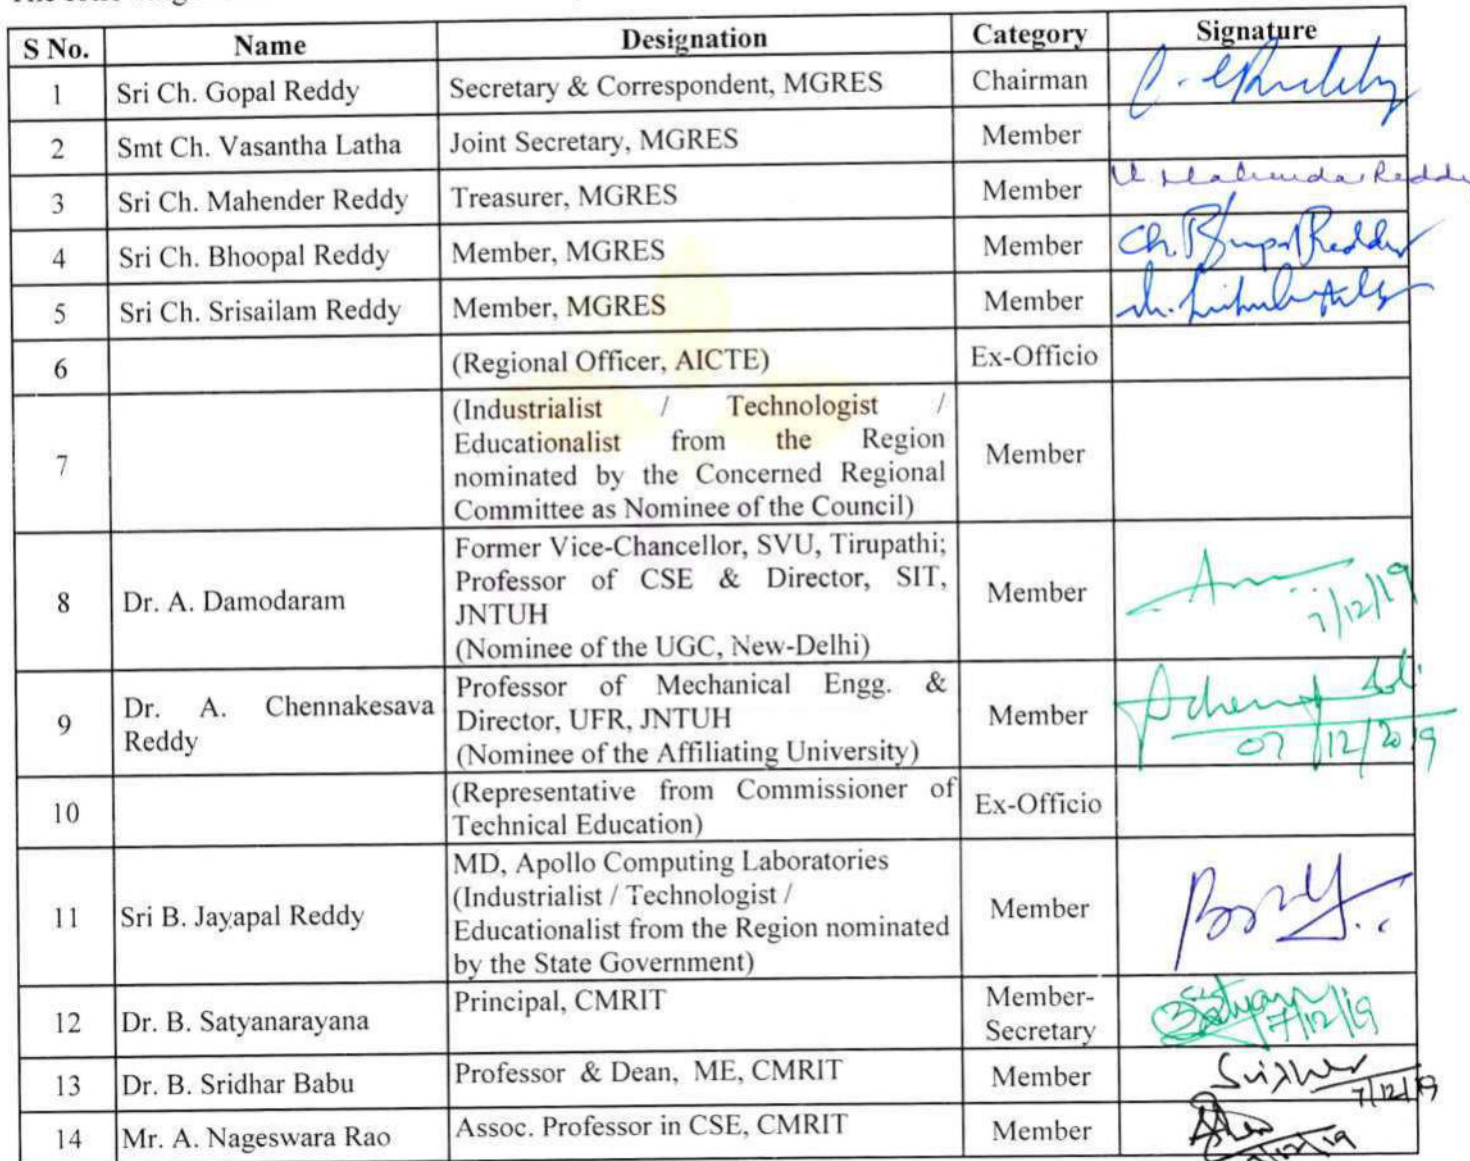 S No. Name Designation Category Signature
1 Sri Ch. Gopal Reddy Secretary & Correspondent, MGRES Chairman
2 Smt Ch. Vasantha Latha Joint Secretary, MGRES Member
3 Sri Ch. Mahender Reddy Treasurer, MGRES Member Reddy
4 Sri Ch. Bhoopal Reddy Member, MGRES Member Ch. Reddy
5 Sri Ch. Srisailam Reddy Member, MGRES Member
6 (Regional Officer, AICTE) Ex-Officio
(Industrialist / Technologist /
Educationalist from the Region
7 nominated by the Concerned Regional Member
Committee as Nominee of the Council)
Former Vice-Chancellor, SVU, Tirupathi;
8 Dr. A. Damodaram Professor of CSE & Director, SIT, Member
JNTUH 7/12/19
(Nominee of the UGC, New-Delhi)
Professor of Mechanical Engg. &
9 Dr. A. Chennakesava Director, UFR, JNTUH Member
Reddy (Nominee of the Affiliating University) 07/12/2019
(Representative from Commissioner of
10 Technical Education) Ex-Officio
MD, Apollo Computing Laboratories
11 Sri B. Jayapal Reddy (Industrialist / Technologist / Member
Educationalist from the Region nominated
by the State Government)
12 Dr. B. Satyanarayana Principal, CMRIT Member-
Secretary 7/12/19
13 Dr. B. Sridhar Babu Professor & Dean, ME, CMRIT Member Sridhar
7/12/19
14 Mr. A. Nageswara Rao Assoc. Professor in CSE, CMRIT Member